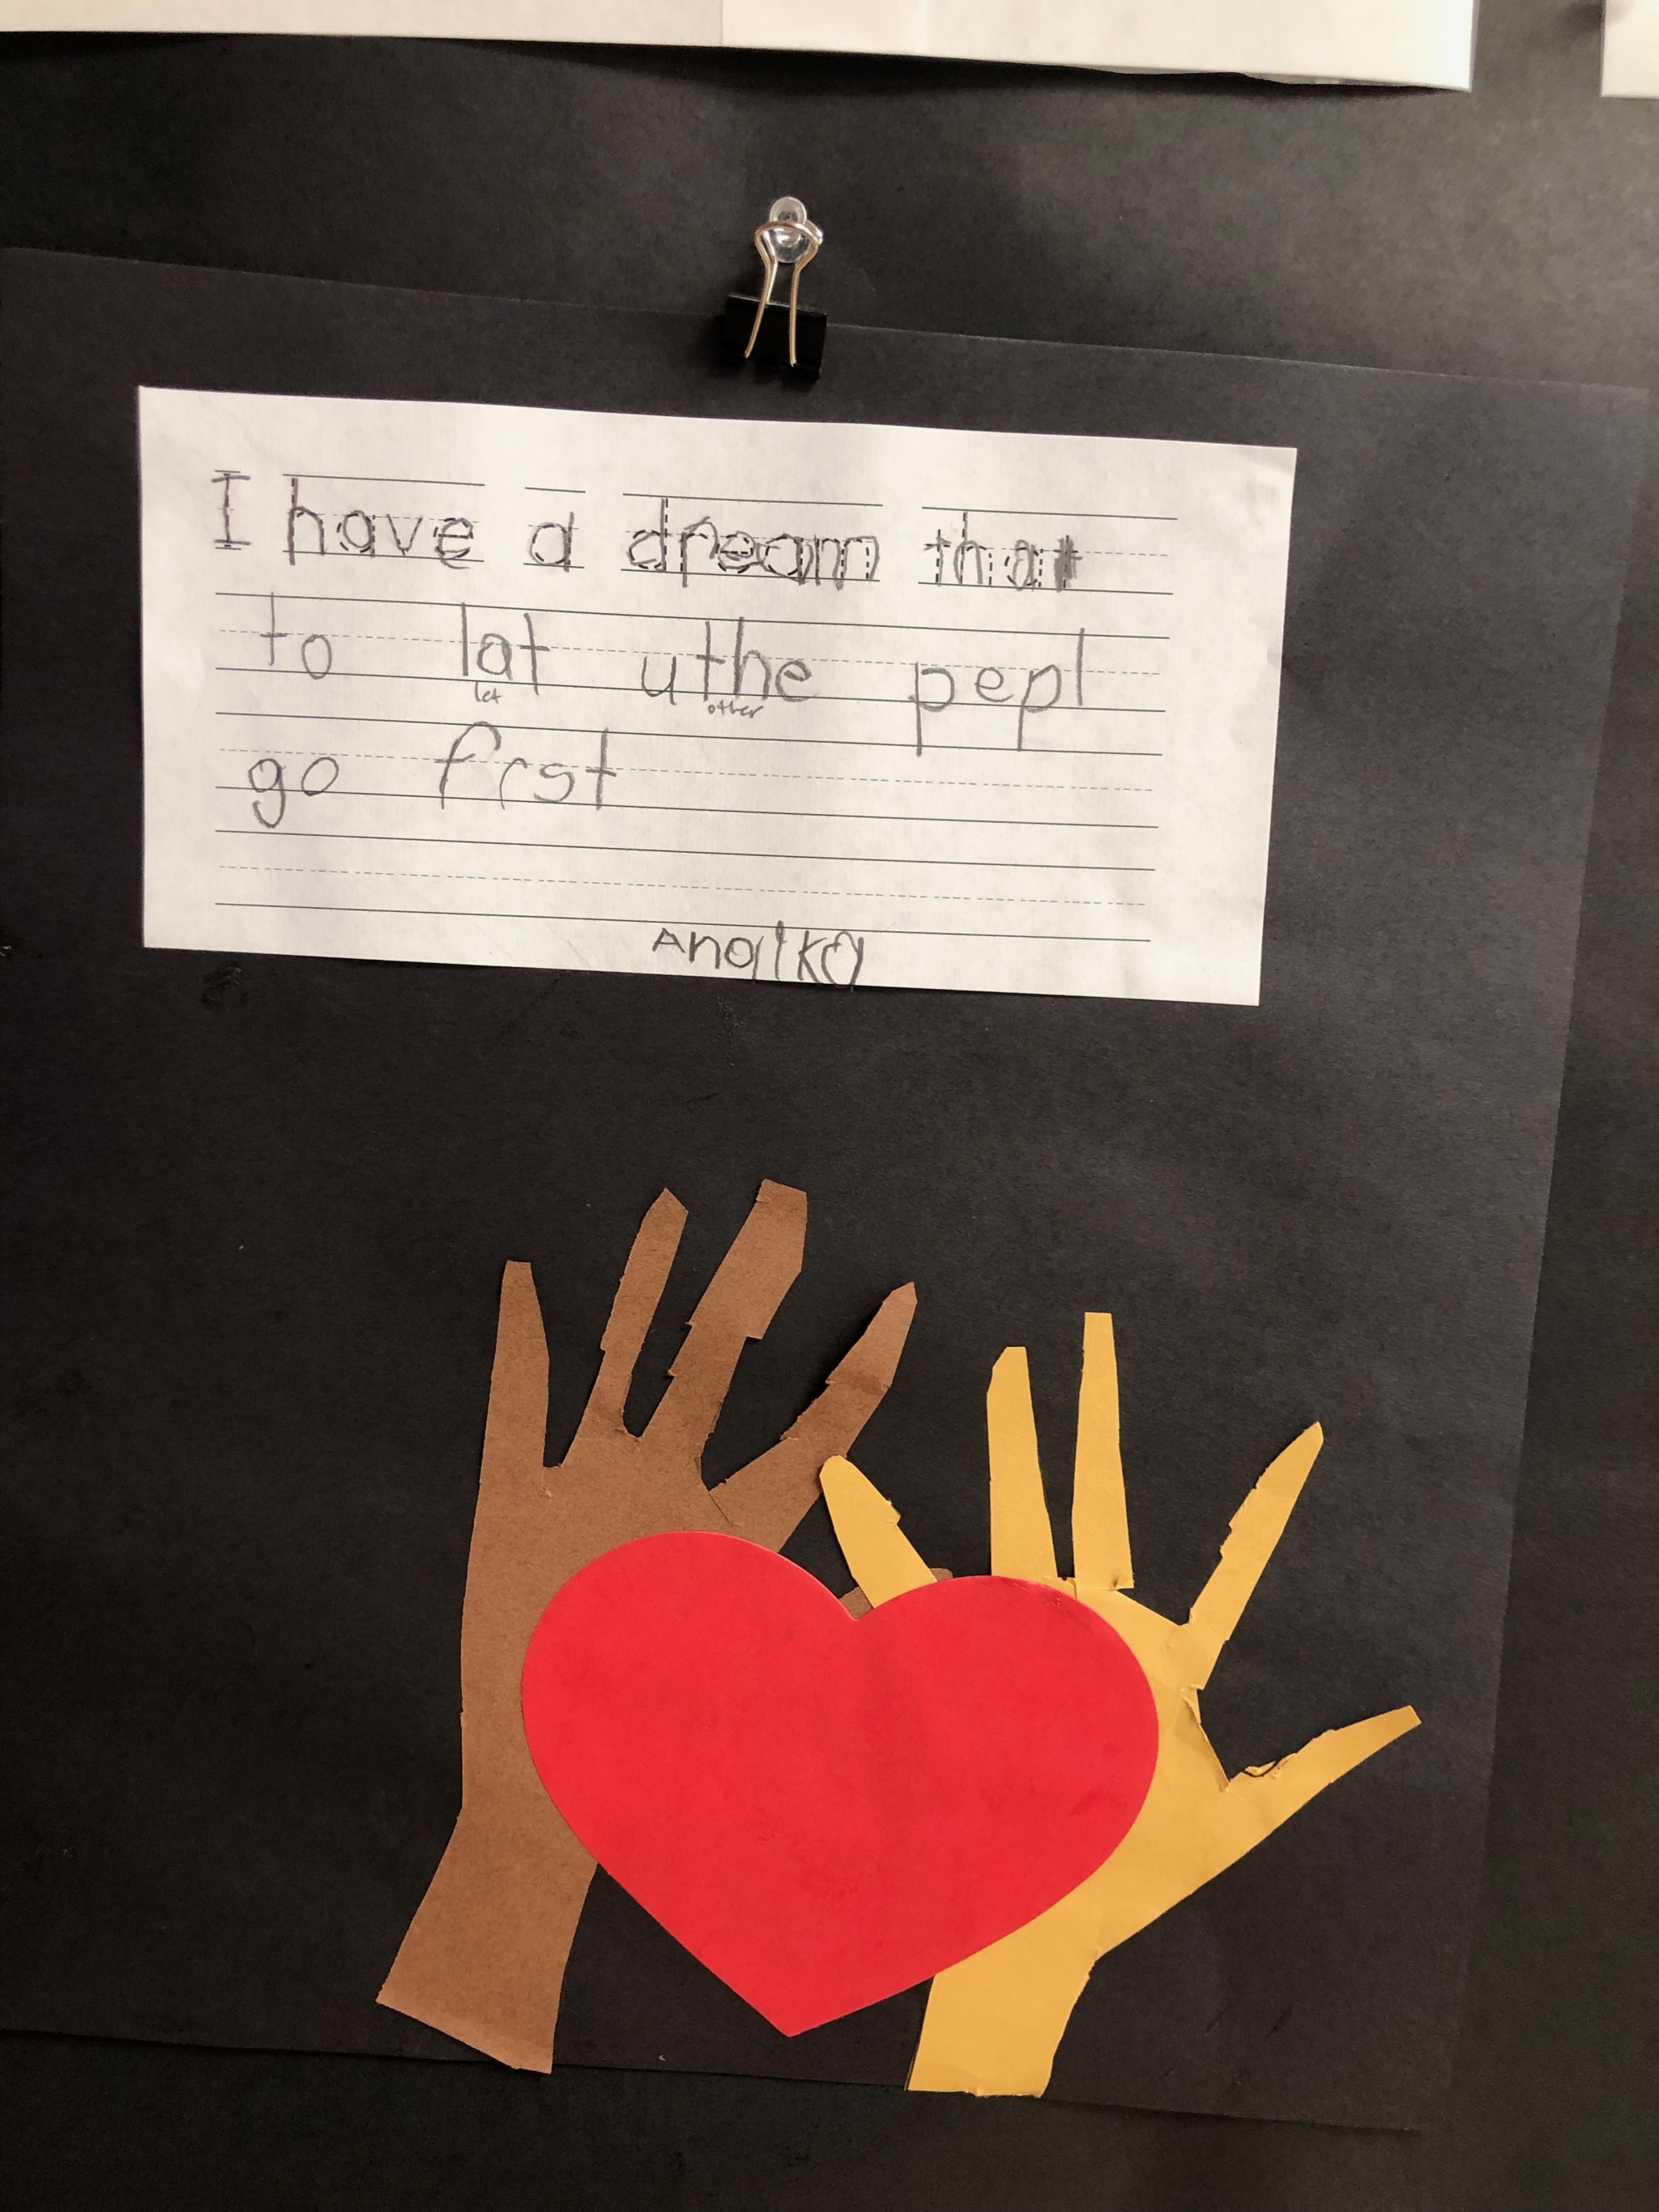 I have a dream that
to lat uthe pepl
let other
go frst
Anaika